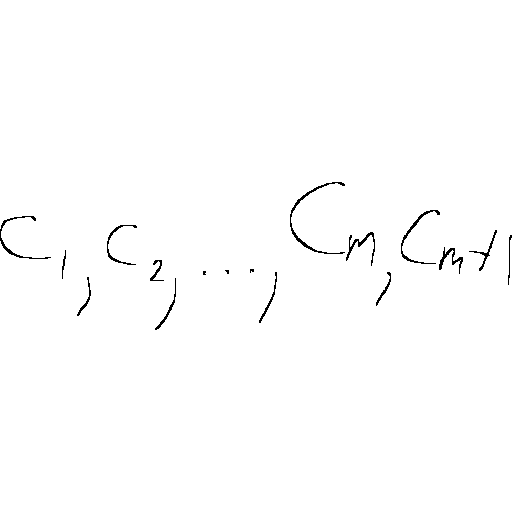 c_1, c_2, ..., c_m, c_{m+1}